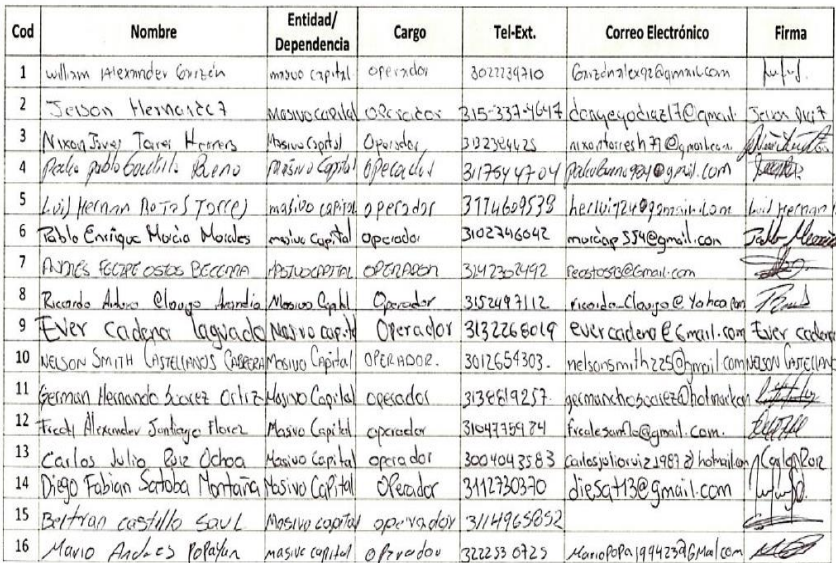 Cod Nombre Entidad/ Dependencia Cargo Tel-Ext. Correo Electrónico Firma
1 William Alexander Garzón masivo capital operador 3022239710 Garzonalex92@gmail.com
2 Jeison Hernandez Masivo capital Operador 315-337-4647 danyeyodiaz17@gmail
3 Nixon Torres Herrera Masivo Capital Operador nixontorresh77@gmail.com
4 Pedro pablo Bueno Masivo Capital Operador 3117544704 pedrobueno924@gmail.com
5 Luis Hernan Rojas Torres masivo capital operador 3174609539 Luis Hernan
6 Pablo Enrique Murcia Morales masivo Capital operador 3102746042 murciap554@gmail.com Pablo Murcia
7 ANDRES FELIPE OSTOS BECERRA MASIVO CAPITAL OPERADOR 3142302492 Feostos13@Gmail.com
8 Ricardo Arturo Clavijo Masivo Capital Operador 3152497112 ricardo_Clavijo@Yahoo.com
9 Ever cadena laguado Masivo capital Operador 3132268019 evercadena@Gmail.com Ever cadena
10 NELSON SMITH CASTELLANOS CABRERA Masivo Capital OPERADOR. 3012654303. nelsonsmith225@gmail.com NELSON CASTELLANO
11 German Hernando Suarez Ortiz Masivo Capital operador 3138819257 germanchosuarez@hotmail.com
12 Fredy Alexander Santiago Florez Masivo Capital operador 3104775984 Fredesanflo@gmail.com.
13 Carlos Julio Ruiz Ochoa Masivo Capital operador 3004043583 carlosjulioruiz1987@hotmail.com Carlos Ruiz
14 Diego Fabian Satoba Montaña Masivo Capital Operador 3112730370 diesat13@gmail.com
15 Beltran castillo Saul Masivo capital operador 3114965852
16 Mario Andres Popayan masivo capital operador 322253 0725 MarioPopa199423@GMail.com